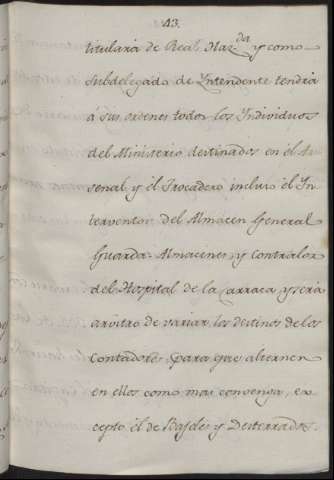 43.
titulará de Real Haz.da y como
Subdelegado de Yntendente tendrá
á sus ordenes todos los Individuos
del Ministerio destinados en el Ar
senal y el Trocadero incluso el In
terventor del Almacen General
Guarda-Almacenes, y Contralor
del Hospital de la Carraca y será
arvitro de variar los destinos de los
Contadores para que alternen
en ellos como mas convenga, ex
cepto el de Bajeles y Desterrados.